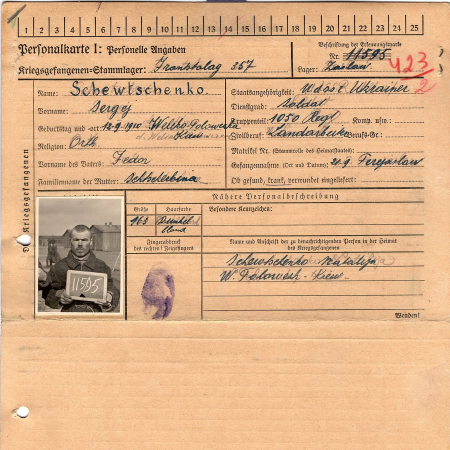 1 2 3 4 5 6 7 8 9 10 11 12 13 14 15 16 17 18 19 20 21 22 23 24 25
Personalkarte I: Personelle Angaben
Beschriftung der Erkennungsmarke
Kriegsgefangenen-Stammlager: Frontstalag 357
Nr. 11595
Lager:
423/2
Des Kriegsgefangenen
Name: Schewtschenko
Vorname: Sergej
Geburtstag und -ort: 12.9.1910 Welcko Polowecka
Religion: Orth.
Vorname des Vaters: Fedor
Familienname der Mutter: Schtscherbina
Staatsangehörigkeit: UdSSR Ukrainer
Dienstgrad: Soldat
Truppenteil: 1050 Regt. Komp. usw.:
Zivilberuf: Landarbeiter Berufs-Gr.:
Matrikel Nr. (Stammrolle des Heimatstaates):
Gefangennahme (Ort und Datum): 21.9. Perejaslaw
Ob gesund, krank, verwundet eingeliefert:
Nähere Personalbeschreibung
Größe Haarfarbe
163 Dunkelblond
Besondere Kennzeichen:
Fingerabdruck
des rechten! Zeigefingers
Name und Anschrift der zu benachrichtigenden Person in der Heimat
des Kriegsgefangenen
Schewtschenko Natalija
W. Polowesk - Kiew
11595
Wenden!